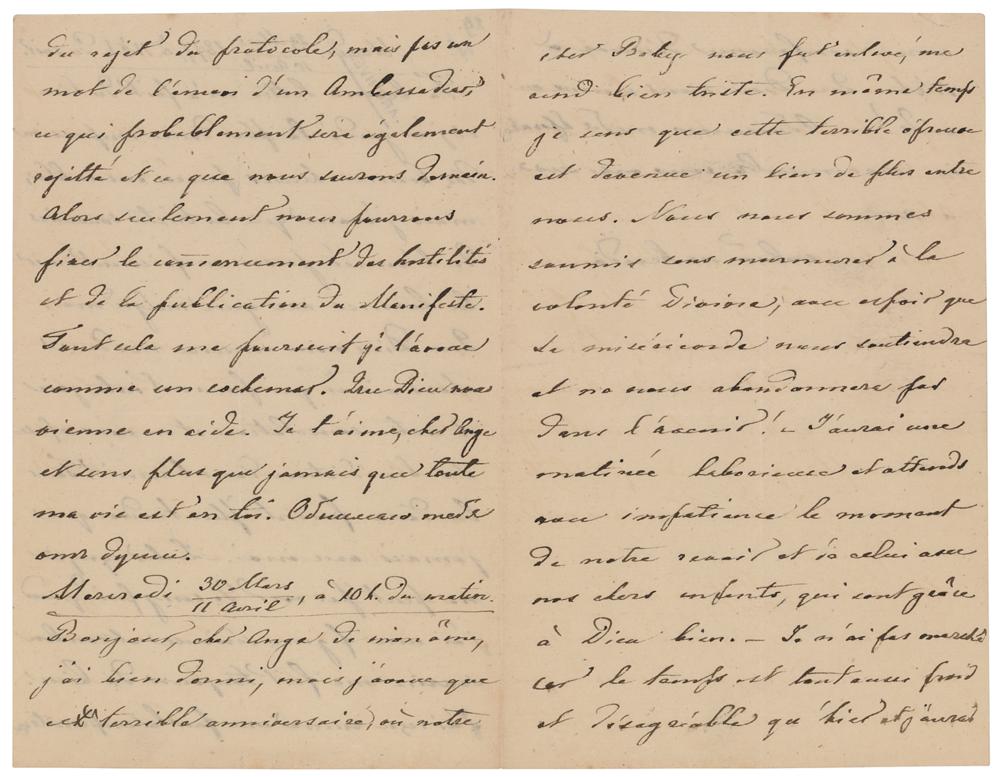 du rejet du protocole, mais pas un
mot de l'envoi d'un Ambassadeur,
ce qui probablement sera également
rejetté et ce que nous saurons demain.
Alors seulement nous pourrons
fixer le commencement des hostilités
et de la publication du Manifeste.
Tout cela me poursuit je l'avoue
comme un cochemar. Que Dieu nous
vienne en aide. Je t'aime, cher Ange
et sens plus que jamais que toute
ma vie est en toi. Обнимаю тебя
отъ души.
Mercredi 30 Mars / 11 Avril, à 10 h. du matin.
Bonjour, cher Ange de mon âme,
j'ai bien dormi, mais j'avoue que
ce terrible anniversaire, où notre
cher nous fut enlevé, me
rend bien triste. En même temps
je sens que cette terrible épreuve
est devenue un lien de plus entre
nous. Nous nous sommes
soumis sans murmurer à la
volonté Divine, avec espoir que
sa miséricorde nous soutiendra
et ne nous abandonnera pas
dans l'avenir! – J'aurai une
matinée laborieuse et attends
avec impatience le moment
de notre revoir et de celui avec
nos chers enfants, qui sont grâce
à Dieu bien. – Je n'ai pas marché
car le temps est tout aussi froid
et désagréable qu'hier et j'aurai